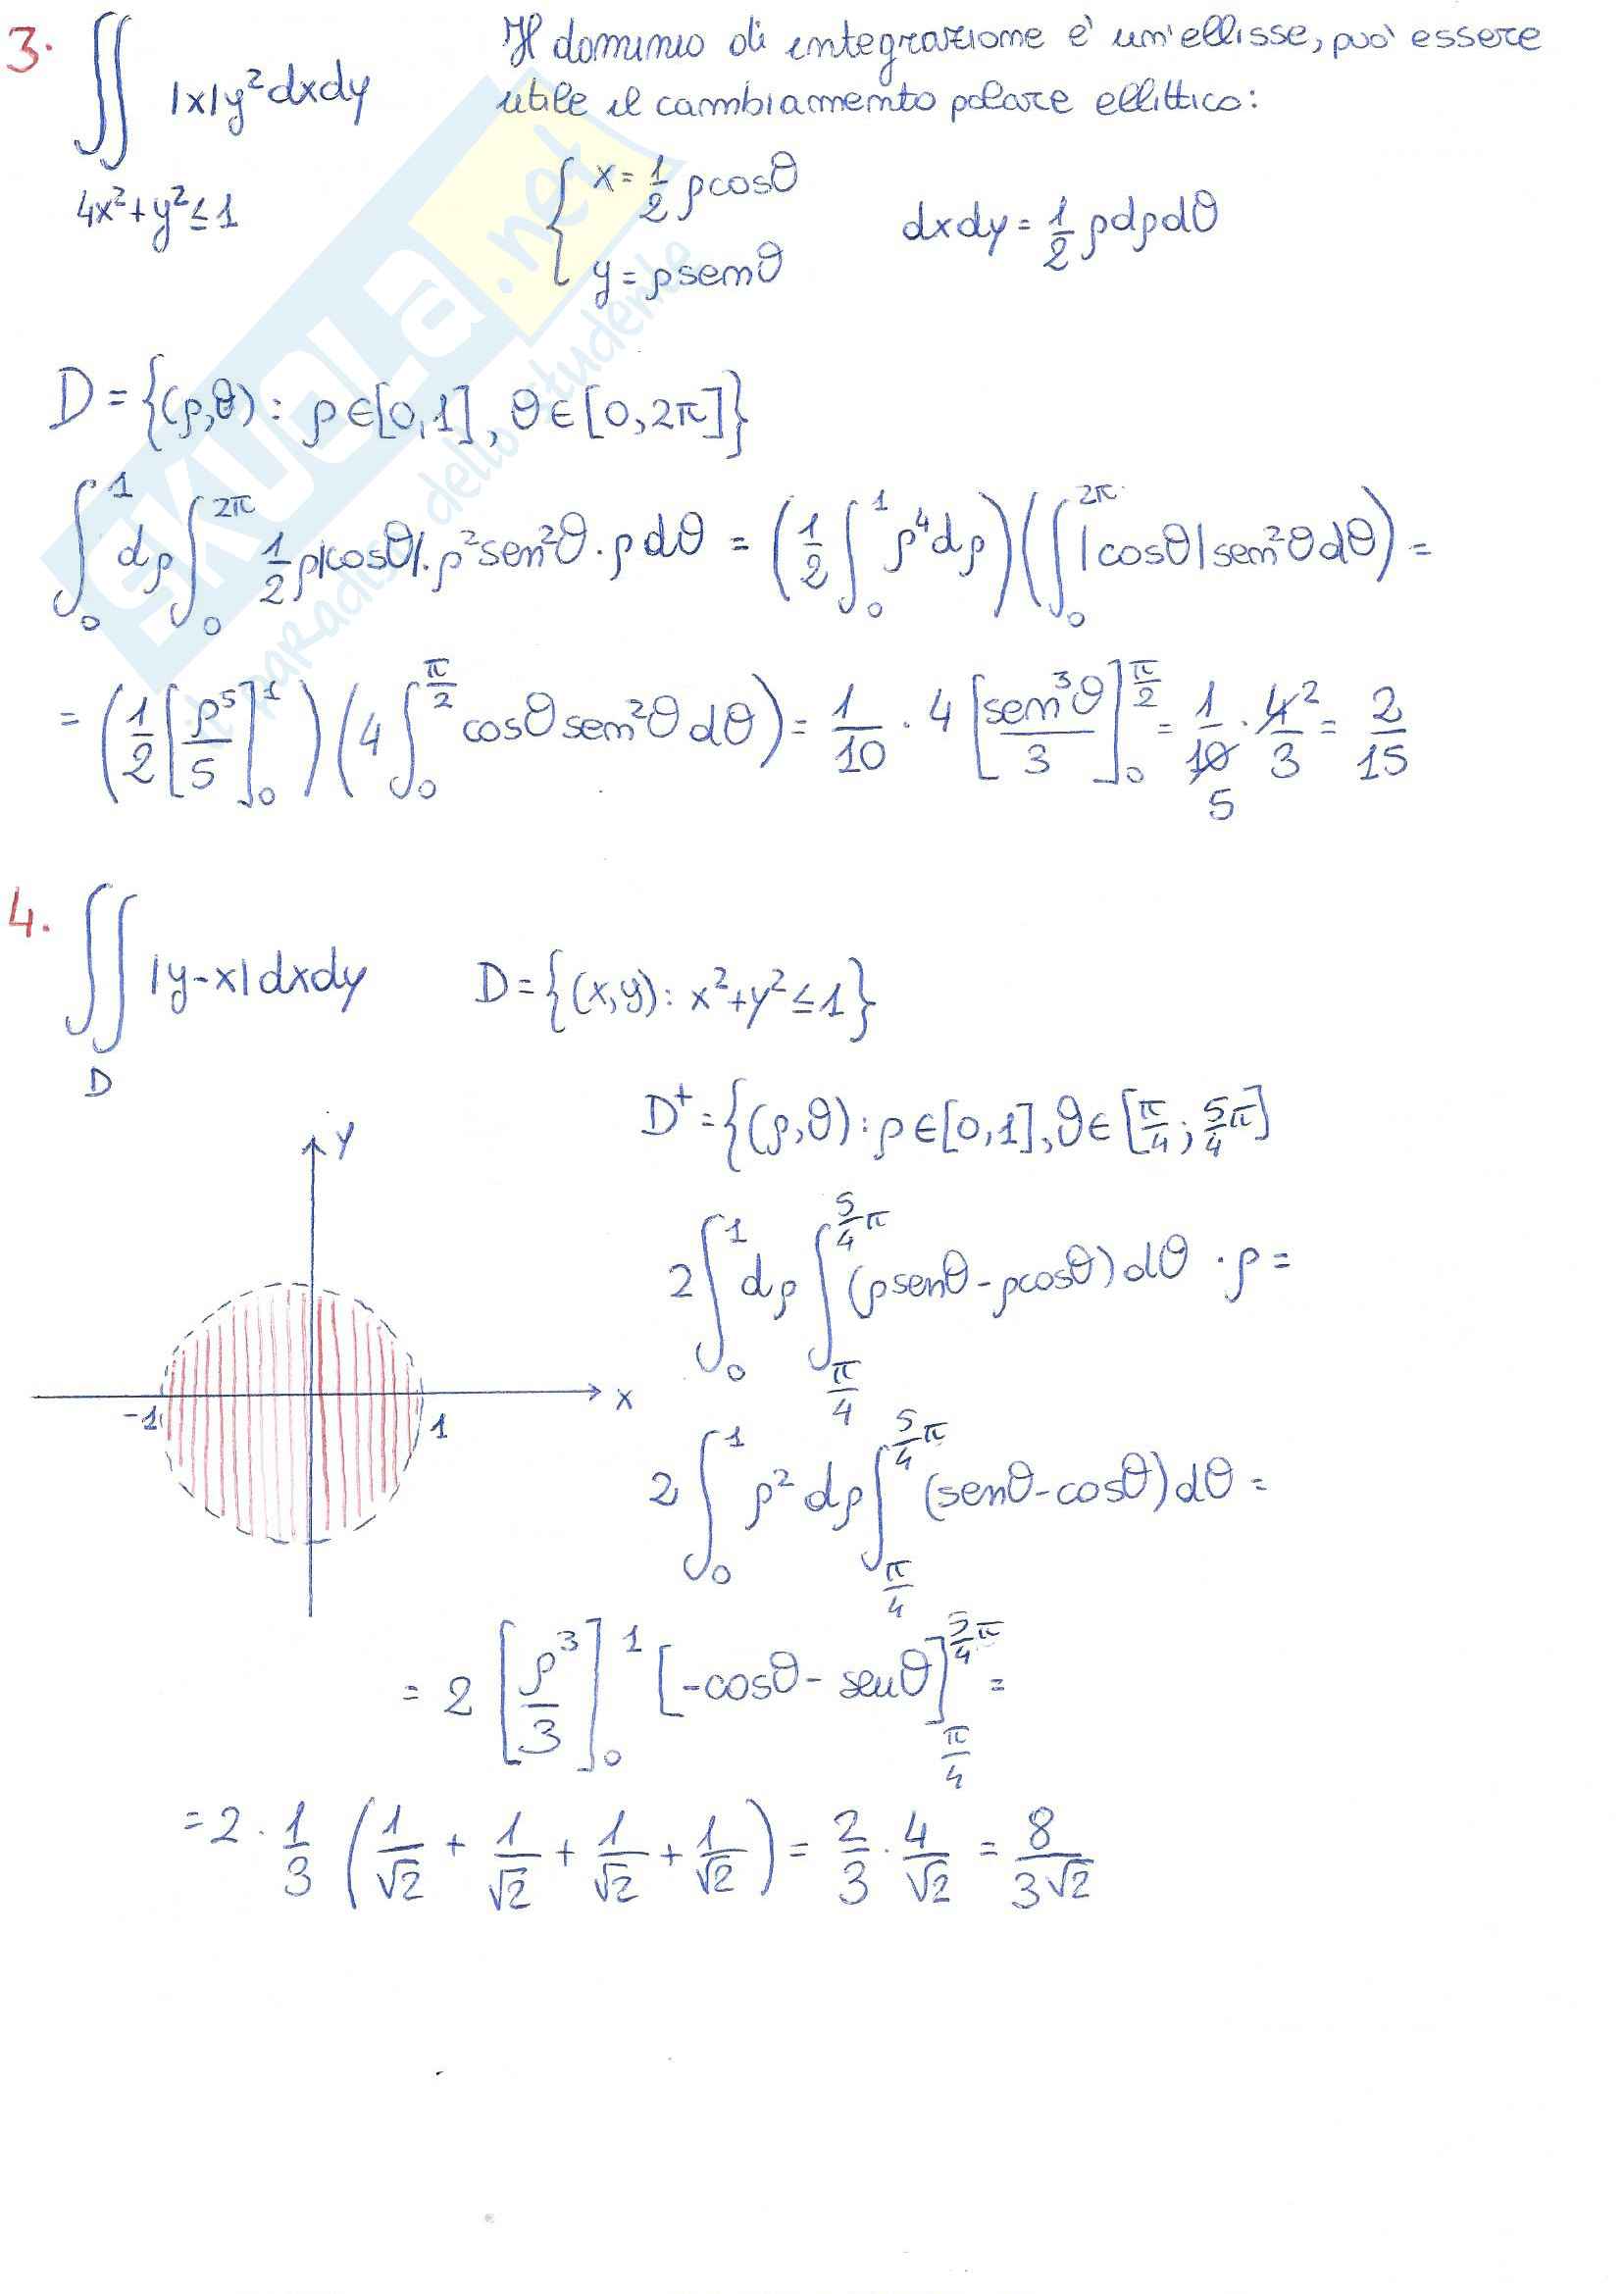 3. ∬ |x|y² dxdy Il dominio di integrazione è un'ellisse, può essere
4x²+y²≤1 utile il cambiamento polare ellittico:
{ x = 1/2 ρcosθ
y = ρsenθ dxdy = 1/2 ρdρdθ
D = {(ρ,θ): ρ∈[0,1], θ∈[0,2π]}
∫₀¹ dρ ∫₀^2π 1/2 ρ|cosθ|·ρ²sen²θ·ρdθ = (1/2 ∫₀¹ ρ⁴dρ)(∫₀^2π |cosθ|sen²θdθ) =
= (1/2 [ρ⁵/5]₀¹)(4 ∫₀^π/2 cosθsen²θdθ) = 1/10 · 4 [sen³θ/3]₀^π/2 = 1/10 5 · 4/3 2 = 2/15
4. ∬ |y-x|dxdy D = {(x,y): x²+y²≤1}
D
D⁺ = {(ρ,θ): ρ∈[0,1], θ∈[π/4; 5/4 π]
y
x
-1
1
2 ∫₀¹ dρ ∫_π/4^5/4π (ρsenθ-ρcosθ)dθ ·ρ =
2 ∫₀¹ ρ² dρ ∫_π/4^5/4π (senθ-cosθ)dθ =
= 2 [ρ³/3]₀¹ [-cosθ-senθ]_π/4^5/4π =
= 2 · 1/3 (1/√2 + 1/√2 + 1/√2 + 1/√2) = 2/3 · 4/√2 = 8/3√2
SKUOLA.net
il paradiso dello studente